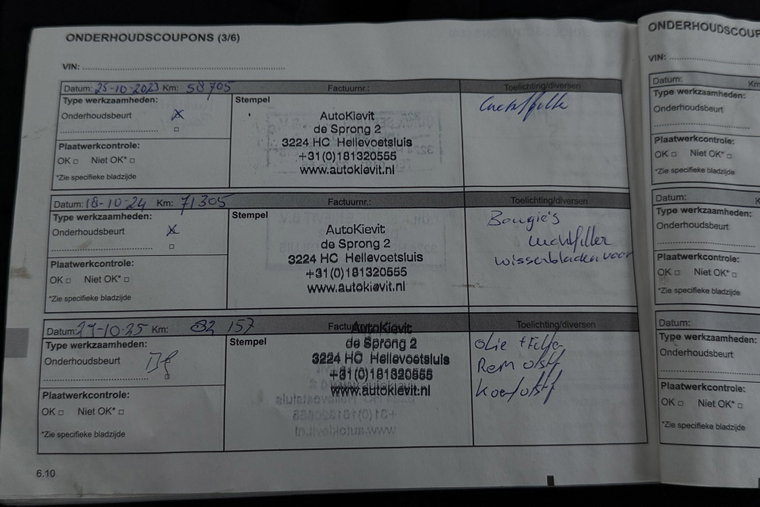 ONDERHOUDSCOUPONS (3/6)
VIN:
Datum: 25-10-2023 Km: 58705 Factuurnr.: Toelichting/diversen
Type werkzaamheden:
Onderhoudsbeurt X
Stempel
AutoKievit
de Sprong 2
3224 HC Hellevoetsluis
+31(0)181320555
www.autokievit.nl
Luchtfilter
Plaatwerkcontrole:
OK Niet OK*
*Zie specifieke bladzijde
Datum: 18-10-24 Km: 71305 Factuurnr.: Toelichting/diversen
Type werkzaamheden:
Onderhoudsbeurt X
Stempel
AutoKievit
de Sprong 2
3224 HC Hellevoetsluis
+31(0)181320555
www.autokievit.nl
Bougie's
Luchtfilter
wisserbladen voor
Plaatwerkcontrole:
OK Niet OK*
*Zie specifieke bladzijde
Datum: -10-25 Km: 82 157 Toelichting/diversen
Type werkzaamheden:
Onderhoudsbeurt
Stempel
AutoKievit
de Sprong 2
3224 HC Hellevoetsluis
+31(0)181320555
www.autokievit.nl
olie + Filter
Rem olst
Koelolst
Plaatwerkcontrole:
OK Niet OK*
*Zie specifieke bladzijde
6.10
ONDERHOUDSCOUP
VIN:
Datum: Km
Type werkzaamheden:
Onderhoudsbeurt
Plaatwerkcontrole:
OK Niet OK*
*Zie specifieke bladzijde
Datum:
Type werkzaamheden:
Onderhoudsbeurt
Plaatwerkcontrole:
OK Niet OK*
*Zie specifieke bladzijde
Datum:
Type werkzaamheden:
Onderhoudsbeurt
Plaatwerkcontrole:
OK Niet OK*
*Zie specifieke bladzijde